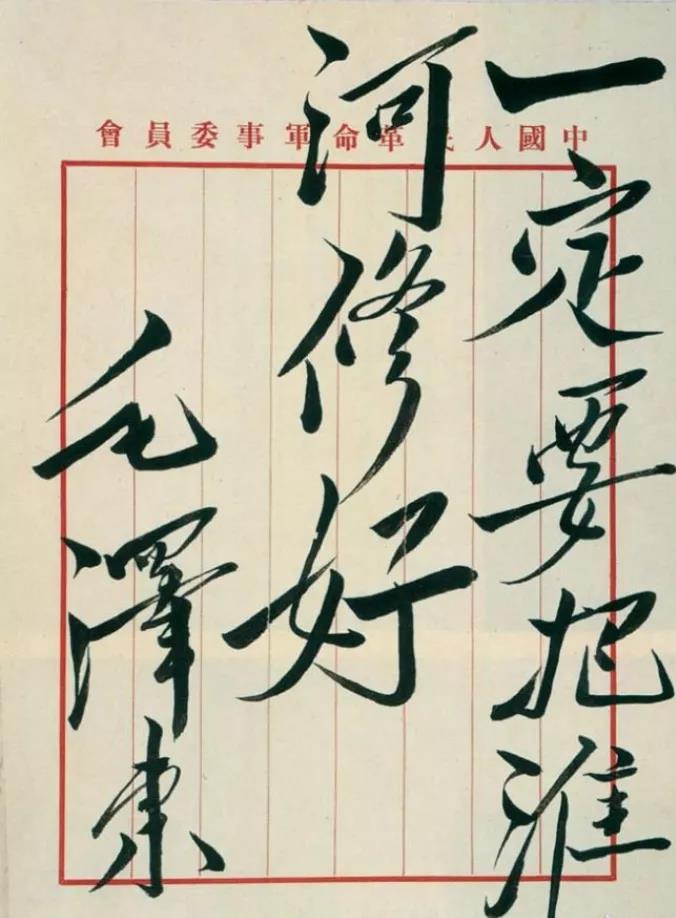 中國人民革命軍事委員會
一定要把淮
河修好
毛澤东